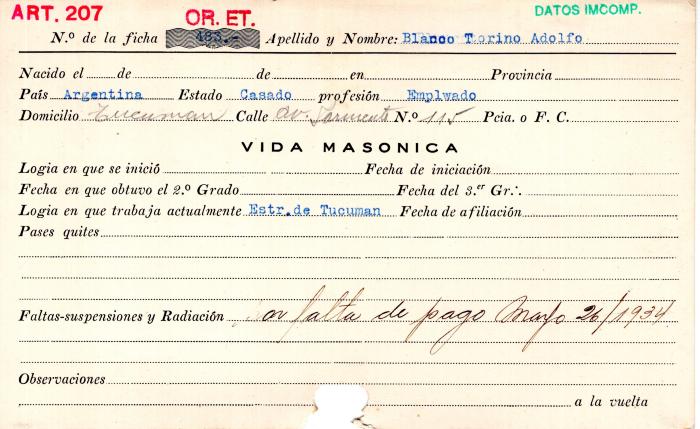 ART. 207 OR. ET. DATOS IMCOMP.
N.º de la ficha 483.- Apellido y Nombre: Blanco Torino Adolfo
Nacido el de de en Provincia
País Argentina Estado Casado profesión Emplwado
Domicilio Tucuman Calle Av. Sarmiento N.º 115 Pcia. o F. C.
VIDA MASONICA
Logia en que se inició Fecha de iniciación
Fecha en que obtuvo el 2.º Grado Fecha del 3.er Gr∴
Logia en que trabaja actualmente Estr. de Tucuman Fecha de afiliación
Pases quites
Faltas-suspensiones y Radiación por falta de pago Mayo 26/1934
Observaciones
a la vuelta